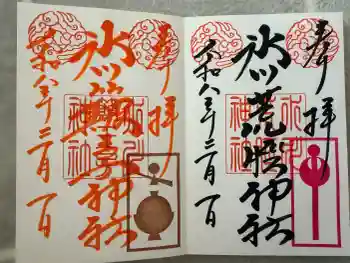 奉拝
氷川簸王子神社
令和八年二月一日
奉拝
氷川荒脛神社
令和八年二月一日